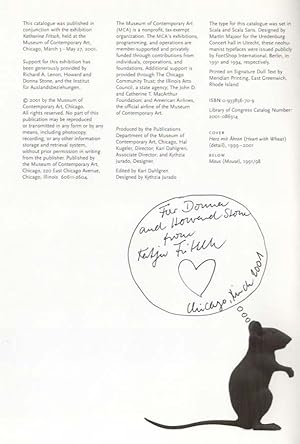 This catalogue was published in
conjunction with the exhibition
Katharina Fritsch, held at the
Museum of Contemporary Art,
Chicago, March 3 – May 27, 2001.
Support for this exhibition has
been generously provided by
Richard A. Lenon, Howard and
Donna Stone, and the Institut
für Auslandsbeziehungen.
© 2001 by the Museum of
Contemporary Art, Chicago.
All rights reserved. No part of this
publication may be reproduced
or transmitted in any form or by any
means, including photocopy,
recording, or any other information
storage and retrieval system,
without prior permission in writing
from the publisher. Published by
the Museum of Contemporary Art,
Chicago, 220 East Chicago Avenue,
Chicago, Illinois 60611-2604.
The Museum of Contemporary Art
(MCA) is a nonprofit, tax-exempt
organization. The MCA's exhibitions,
programming, and operations are
member-supported and privately
funded through contributions from
individuals, corporations, and
foundations. Additional support is
provided through The Chicago
Community Trust; the Illinois Arts
Council, a state agency; The John D.
and Catherine T. MacArthur
Foundation; and American Airlines,
the official airline of the Museum
of Contemporary Art.
Produced by the Publications
Department of the Museum of
Contemporary Art, Chicago, Hal
Kugeler, Director; Kari Dahlgren,
Associate Director; and Kythzia
Jurado, Designer.
Edited by Kari Dahlgren
Designed by Kythzia Jurado
The type for this catalogue was set in
Scala and Scala Sans. Designed by
Martin Majoor for the Vredenburg
Concert hall in Utrecht, these
typefaces were issued publicly
by FontShop International, Berlin, in
1991 and 1994, respectively.
Printed on Signature Dull Text by
Meridian Printing, East Greenwich,
Rhode Island
ISBN: 0-933856-70-9
Library of Congress Catalog Number:
2001-086514
COVER
Herz mit Ähren (Heart with Wheat)
(detail), 1999–2001
BELOW
Maus (Mouse), 1991/98
For Donna
and Howard Stone
from
Chicago, 2001